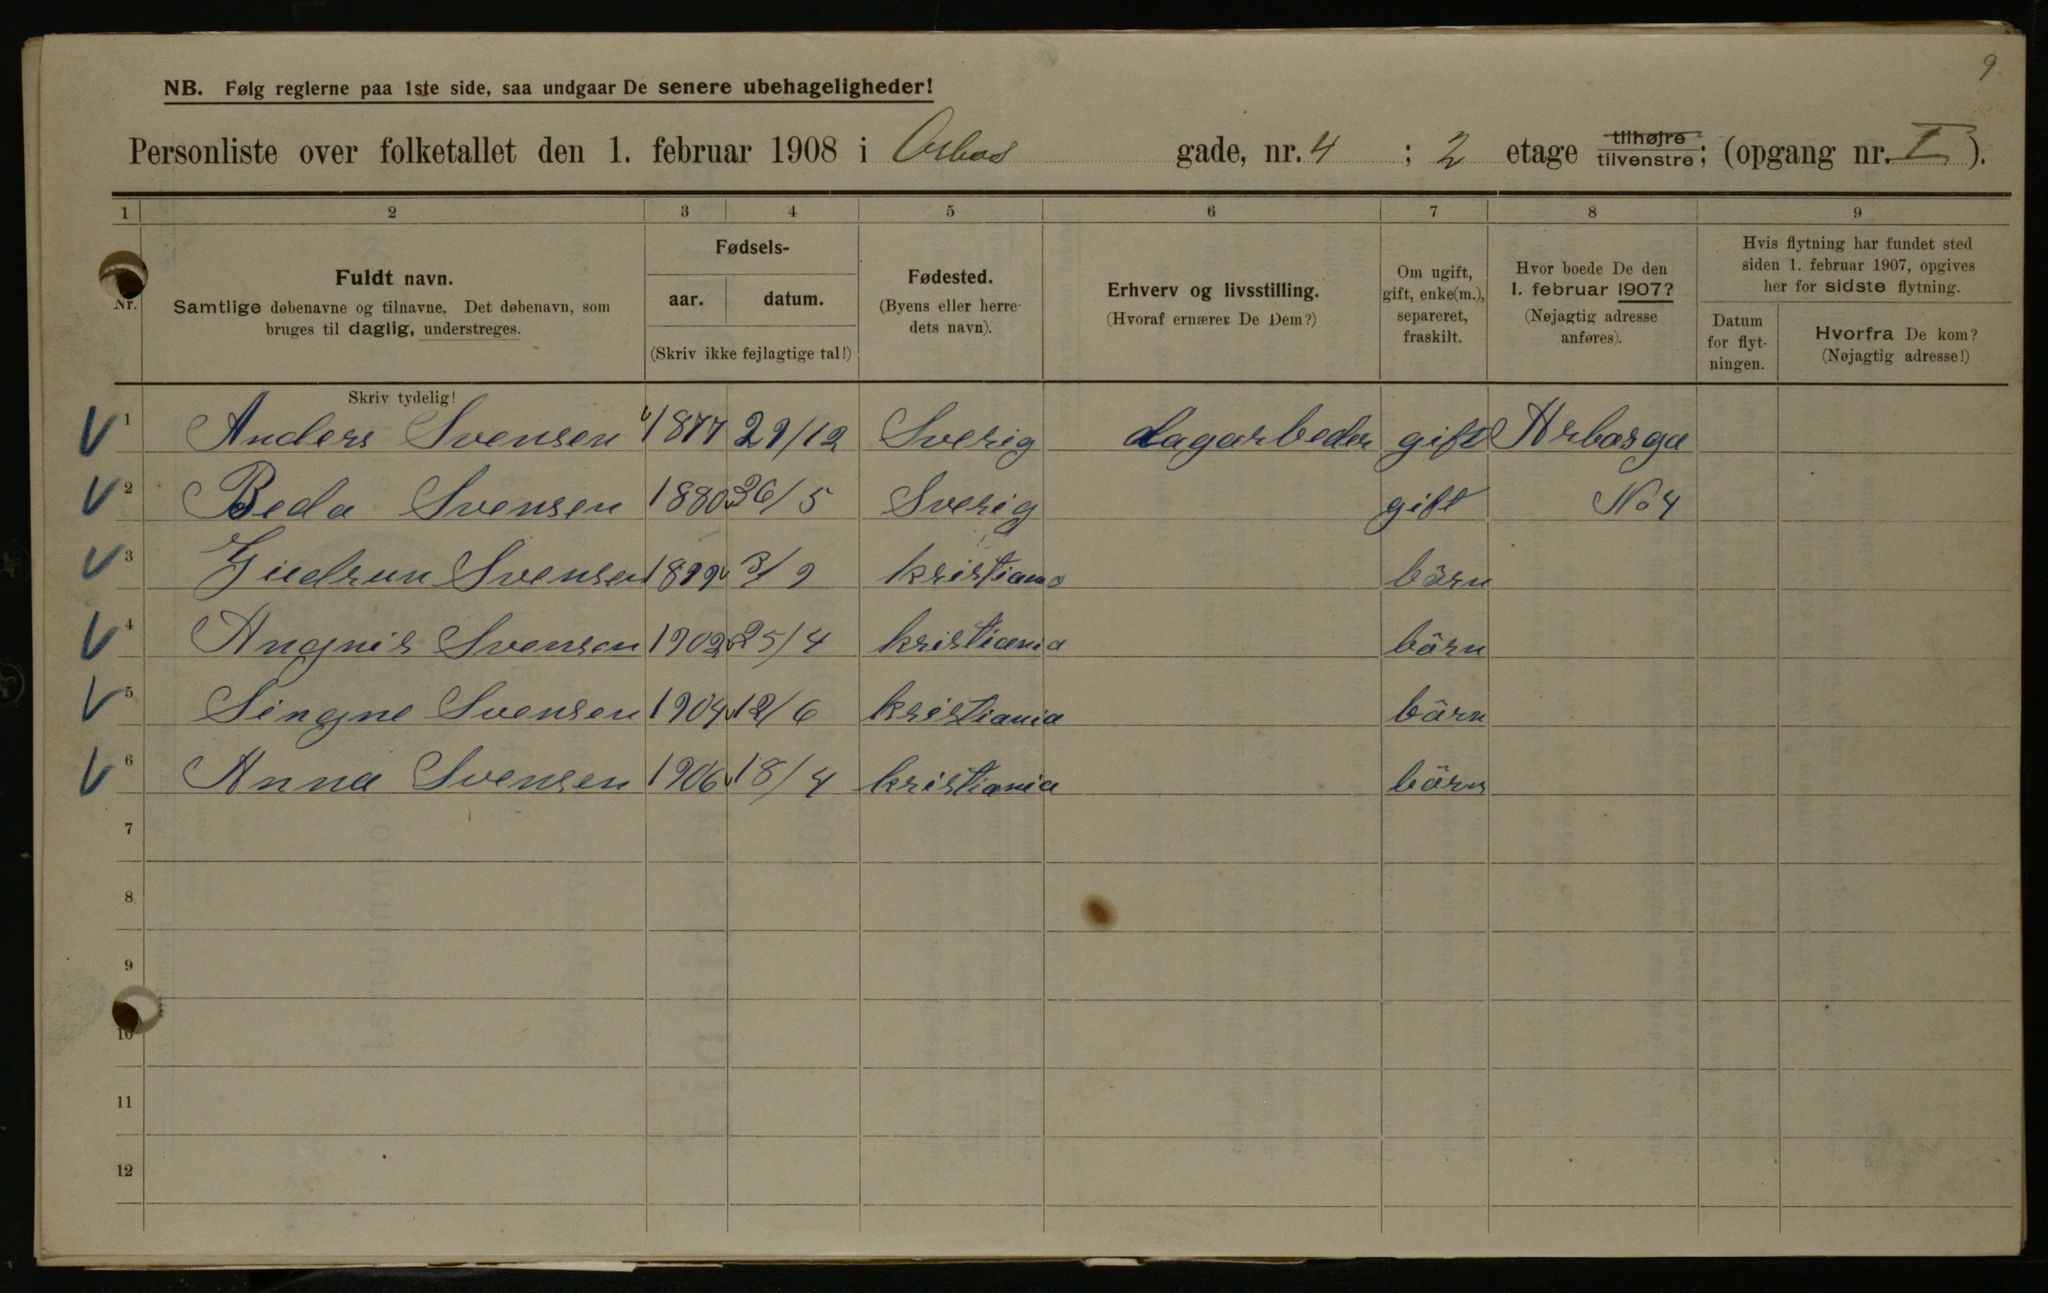 9
NB. Følg reglerne paa 1ste side, saa undgaar De senere ubehageligheder!
Personliste over folketallet den 1. februar 1908 i Arbos gade, nr. 4 ; 2 etage tilhøjre tilvenstre; (opgang nr. I ).
1 2 3 4 5 6 7 8 9
Nr.
Fuldt navn.
Samtlige døbenavne og tilnavne. Det døbenavn, som
bruges til daglig, understreges.
Fødsels-
aar. datum.
(Skriv ikke fejlagtige tal!)
Fødested.
(Byens eller herre-
dets navn).
Erhverv og livsstilling.
(Hvoraf ernærer De Dem?)
Om ugift,
gift, enke(m.),
separeret,
fraskilt.
Hvor boede De den
1. februar 1907?
(Nøjagtig adresse
anføres).
Hvis flytning har fundet sted
siden 1. februar 1907, opgives
her for sidste flytning.
Datum
for flyt-
ningen.
Hvorfra De kom?
(Nøjagtig adresse!)
Skriv tydelig!
1 Anders Svensen 1877 29/12 Sverig dagarbeder gift Arbosga
2 Beda Svensen 1880 26/5 Sverig gift No 4
3 Gudrun Svensen 1899 3/9 kristiana börn
4 Angnis Svensen 1902 25/4 kristiania börn
5 Singne Svensen 1904 12/6 kristiania börn
6 Anna Svensen 1906 18/4 kristiania börn
7
8
9
10
11
12